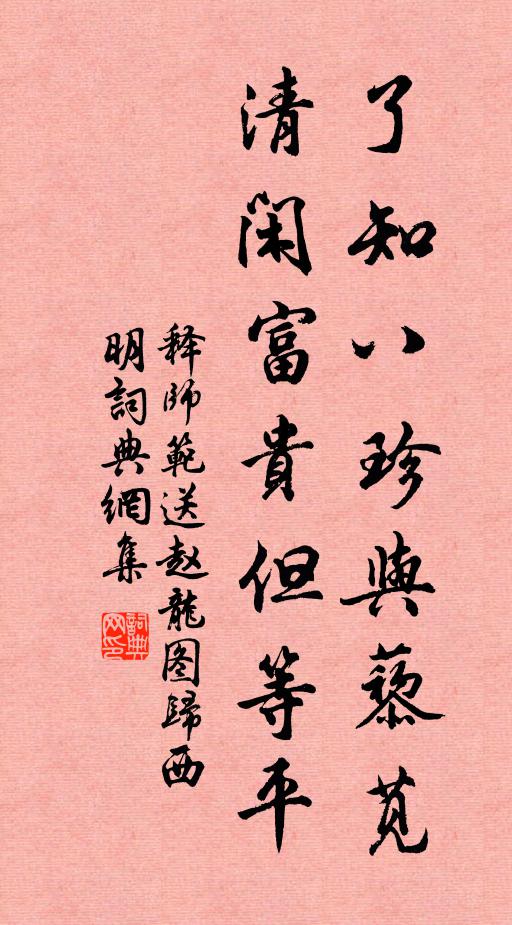 了知八珍與藜莧
清閑富貴但等平
释師範送赵龍图歸西
明詞典網集
詞典网印